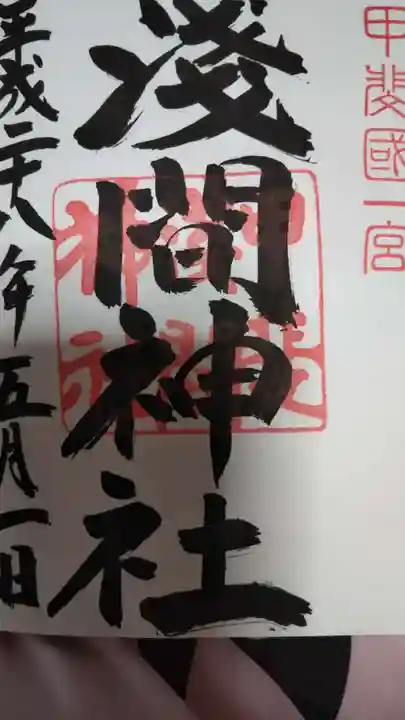 甲斐國一宮
淺間神社
平成二十八年五月一日